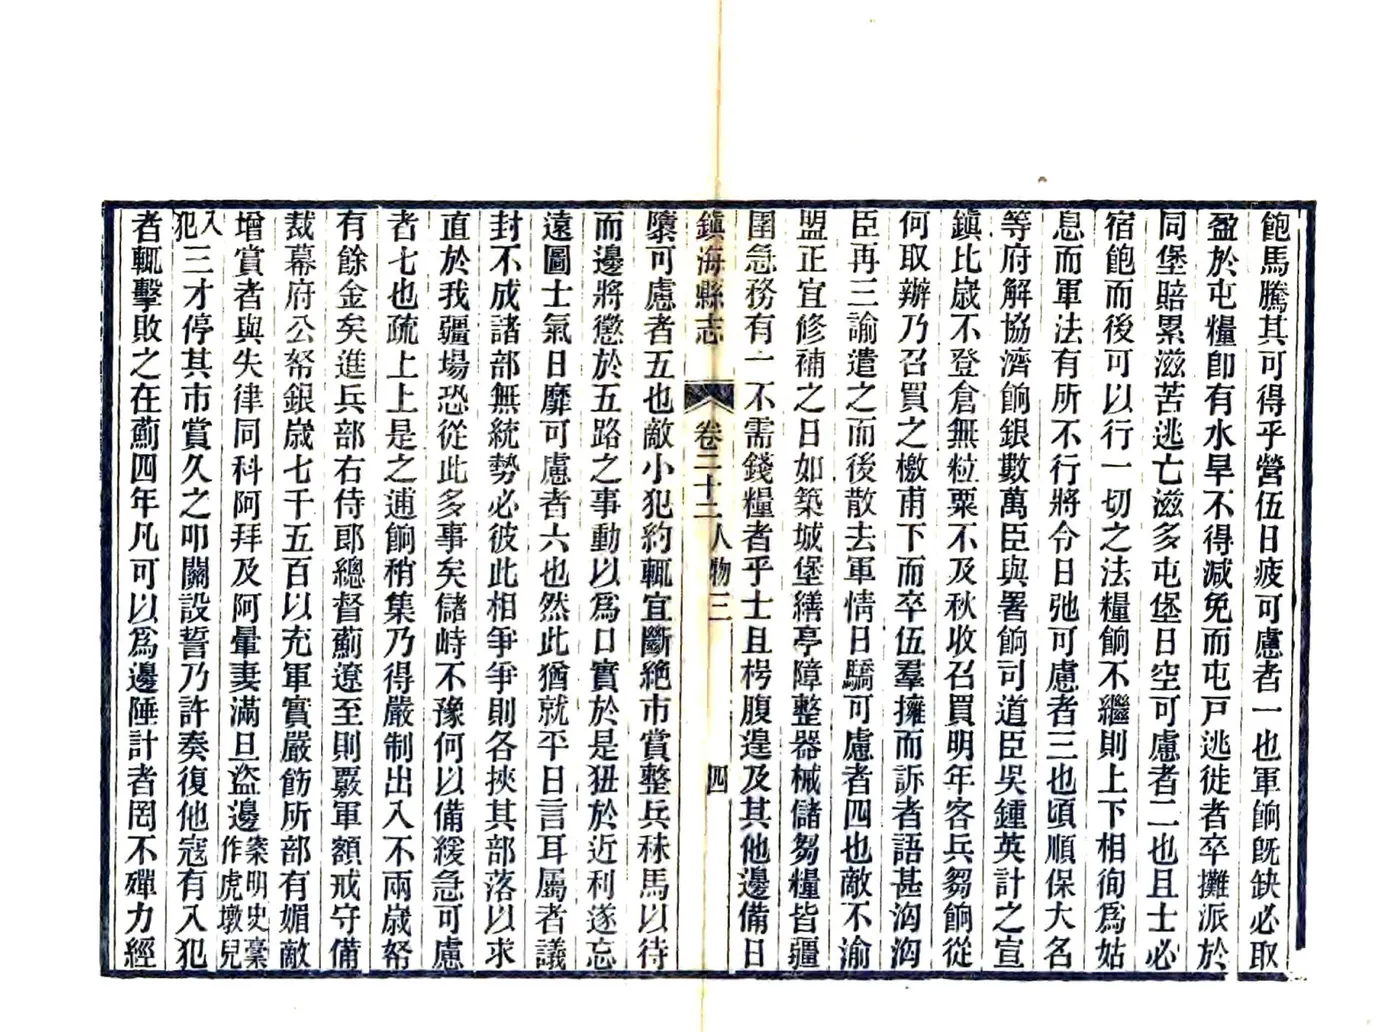 飽馬騰其可得乎營伍日疲可慮者一也軍餉旣缺必取
盈於屯糧卽有水旱不得減免而屯戶逃徙者卒攤派於
同堡賠累滋苦逃亡滋多屯堡日空可慮者二也且士必
宿飽而後可以行一切之法糧餉不繼則上下相徇爲姑
息而軍法有所不行將令日弛可慮者三也頃順保大名
等府解協濟餉銀數萬臣與署餉司道臣吳鍾英計之宣
鎮比歲不登倉無粒粟不及秋收召買明年客兵芻餉從
何取辦乃召買之檄甫下而卒伍羣擁而訴者語甚洶洶
臣再三諭遣之而後散去軍情日驕可慮者四也敵不渝
盟正宜修補之日如築城堡繕亭障整器械儲芻糧皆疆
圉急務有一不需錢糧者乎士且枵腹遑及其他邊備日
鎮海縣志 卷二十三 人物三 四
隳可慮者五也敵小犯約輒宜斷絶市賞整兵秣馬以待
而邊將懲於五路之事動以爲口實於是狃於近利遂忘
遠圖士氣日靡可慮者六也然此猶就平日言耳屬者議
封不成諸部無統勢必彼此相爭爭則各挾其部落以求
直於我疆場恐從此多事矣儲峙不豫何以備緩急可慮
者七也疏上上是之逋餉稍集乃得嚴制出入不兩歲帑
有餘金矣進兵部右侍郎總督薊遼至則覈軍額戒守備
裁幕府公帑銀歲七千五百以充軍實嚴飭所部有媚敵
增賞者與失律同科阿拜及阿暈妻滿旦盜邊案明史稾作虎墩兒
入犯三才停其市賞久之叩關設誓乃許奏復他寇有入犯
者輒擊敗之在薊四年凡可以爲邊陲計者罔不殫力經